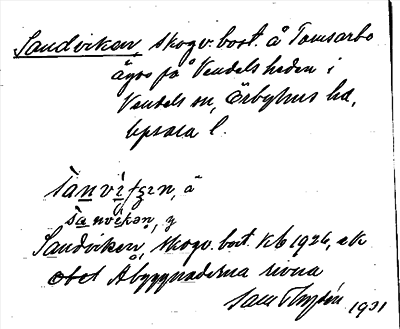 Sandviken, skogv.bost. å Tomsarbo
ägor på Vendelsheden i
Vendels sn, Örbyhus hd,
Upsala l.
sanvìtʒɪn, ä
sanvikən, y
Sandviken, skogv. bost. Kb 1926, ek
obet Åbyggnaderna rivna
1931